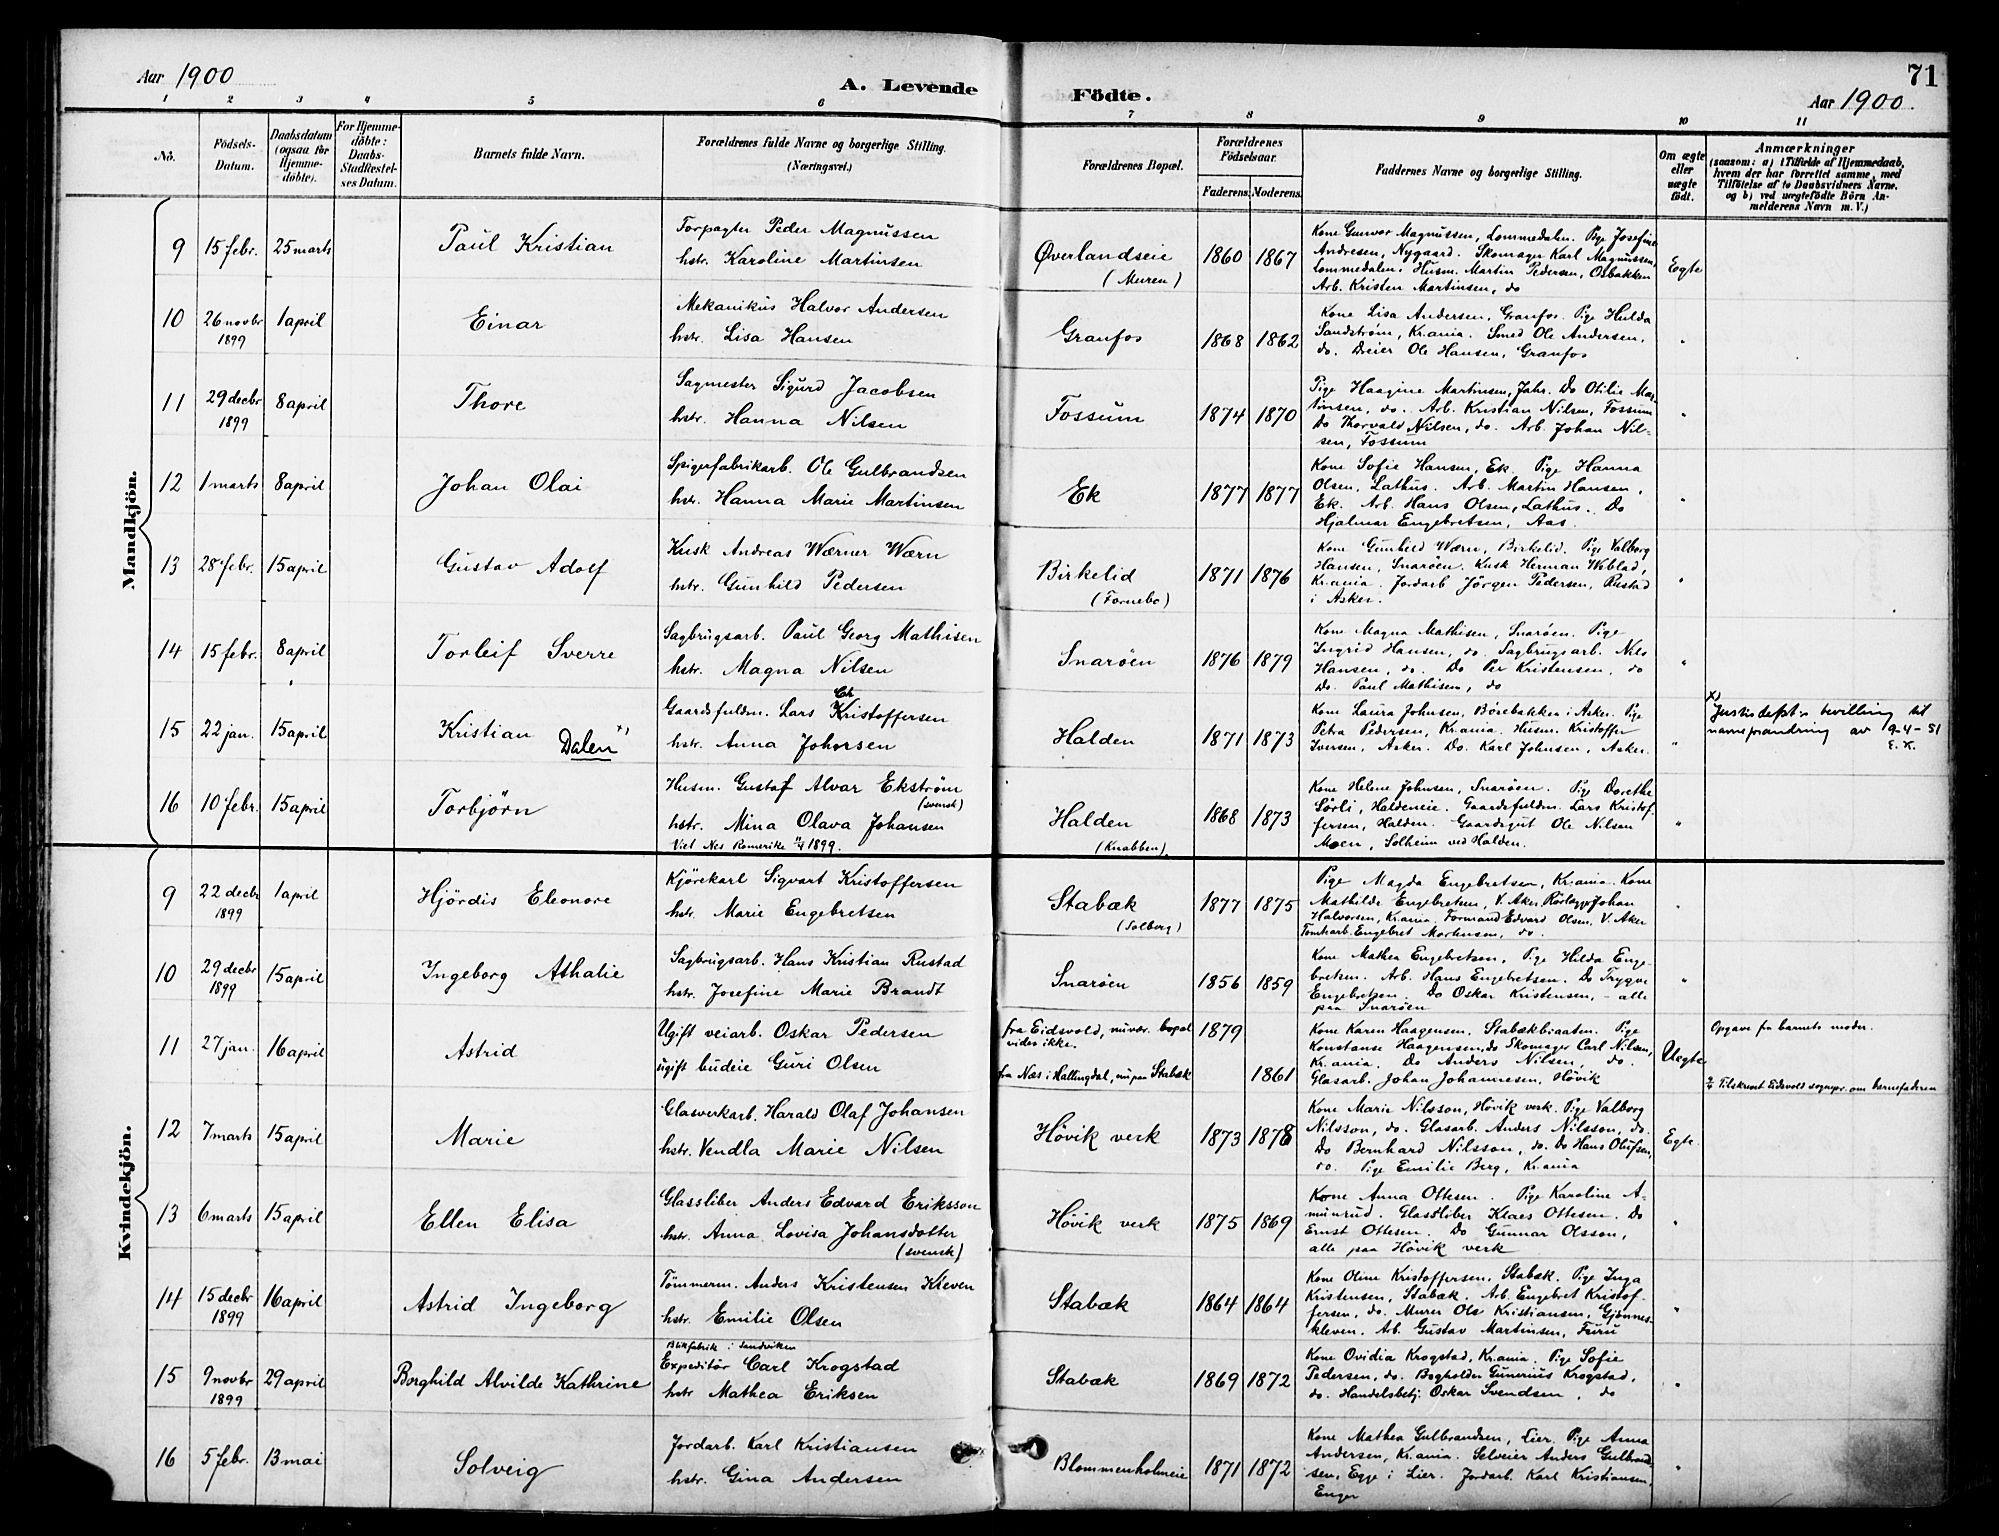 Aar 1900
A. Levende Födte.
71
Aar 1900.
1 2 3 4 5 6 7 8 9 10 11
No.
Födsels-Datum.
Daabsdatum (ogsaa for Hjemme-döbte).
For Hjemme-döbte: Daabs-Stadfæstel-ses Datum.
Barnets fulde Navn.
Forældrenes fulde Navne og borgerlige Stilling. (Næringsvei.)
Forældrenes Bopæl.
Forældrenes Födselsaar.
Faderens. Moderens.
Faddernes Navne og borgerlige Stilling.
Om ægte eller uægte födt.
Anmærkninger
(saasom: a) i Tilfælde af Hjemmedaab, hvem der har forrettet samme, med Tilföielse af to Daabsvidners Navne. og b) ved uægtefödte Börn An-melderens Navn m. V.)
Mandkjön.
9 15 febr. 25 marts Paul Kristian
Forpagter Peder Magnussen
hstr. Karoline Martinsen
Øverlandseie
(Muren)
1860 1867
Kone Gunvor Magnussen, Lommedalen. Pige Josefine
Andresen, Nygaard. Skomager Karl Magnussen,
Lommedalen. Husm. Martin Pedersen, Osbakken
Arb. Kristen Martinsen, do
Egte
10 26 novbr 1899 1 april Einar
Mekanikus Halvor Andersen
hstr. Lisa Hansen
Granfos
1868 1862
Kone Lisa Andersen, Granfos. Pige Hulda
Sandstrøm, Kr.ania. Smed Ole Andersen,
do. Dreier Ole Hansen, Granfos
"
11 29 decbr 1899 8 april Thore
Sagmester Sigurd Jacobsen
hstr. Hanna Nilsen
Fossum
1874 1870
Pige Haagine Martinsen, Jahr. Do Otilie Mar-
tinsen, do. Arb. Kristian Nilsen, Fossum
Do Thorvald Nilsen, do. Arb. Johan Nil-
sen, Fossum
"
12 1 marts 8 april Johan Olai
Spigerfabrikarb. Ole Gulbrandsen
hstr. Hanna Marie Martinsen
Ek
1877 1877
Kone Sofie Hansen, Ek. Pige Hanna
Olsen, Lathus. Arb. Martin Hansen,
Ek. Arb. Hans Olsen, Lathus. Do
Hjalmar Engebretsen, Aas.
"
13 28 febr. 15 april Gustav Adolf
Kusk Andreas Wærner Wærn
hstr. Gunhild Pedersen
Birkelid
(Fornebo)
1871 1876
Kone Gunhild Wærn, Birkelid. Pige Valborg
Hansen, Snarøen. Kusk Herman Weblad,
Kr.ania. Jordarb Jörgen Pedersen, Rustad
i Asker.
"
14 15 febr. 8 april Torleif Sverre
Sagbrugsarb. Paul Georg Mathisen
hstr. Magna Nilsen
Snarøen
1876 1879
Kone Magna Mathisen, Snarøen. Pige
Ingrid Hansen, do. Sagbrugsarb. Nils
Hansen, do. Do Per Kristensen, do
Do. Paul Mathisen, do
"
15 22 jan. 15 april Kristian Dalen x)
Gaardsfuldm. Lars Kristoffersen
Ch
hstr. Anna Johnsen
Halden
1871 1873
Kone Laura Johnsen, Börsebakken i Asker. Pige
Petra Pedersen, Kr.ania. Husm. Kristoffer
Iversen, Asker. Do. Karl Johnsen, Asker.
"
x) Justisdept's bevilling til
navneforandring av 9-4-51
E.K.
16 10 febr. 15 april Torbjörn
Husm. Gustaf Alvar Ekström
(svensk)
hstr. Mina Olava Johansen
Viet Nes Romerike 1899.
Halden
(Knabben)
1868 1873
Kone Helene Johnsen, Snarøen. Pige Dorethe
Sörli, Haldeneie. Gaardsfuldm. Lars Kristof-
fersen, Halden. Gaardsgut Ole Nilsen
Moen, Solheim ved Halden.
"
Kvindekjön.
9 22 decbr 1899 1 april Hjördis Eleonore
Kjörekarl Sigvart Kristoffersen
hstr. Marie Engebretsen
Stabæk
(Solberg)
1877 1875
Pige Magda Engebretsen, Kr.ania. Kone
Mathilde Engebretsen, V. Aker. Rörlægger Johan
Halvorsen, Kr.ania. Formand Edvard Olsen, V. Aker
Tomtarb. Engebret Mortensen, do.
"
10 29 decbr 1899 15 april Ingeborg Athalie
Sagbrugsarb. Hans Kristian Rustad
hstr. Josefine Marie Brandt
Snarøen
1856 1859
Kone Mathea Engebretsen, Pige Hilda Enge-
bretsen. Arb. Hans Engebretsen. Do Trygve
Engebretsen. Do Oskar Kristensen, - alle
paa Snarøen
"
11 27 jan. 16 april Astrid
Ugift veiarb. Oskar Pedersen
ugift budeie Guri Olsen
fra Eidsvold, nuvær. bopæl
vides ikke.
fra Næs i Hallingdal, nu paa Stabæk
1879
1861
Kone Karen Haagensen, Stabækbraaten. Pige
Konstanse Haagensen, do Skomager Carl Nilsen,
Kr.ania. Do Anders Nilsen, do.
Glasarb. Johan Johannesen, Hövik
Uegte
Opgave fra barnets moder.
Tilskrevet Eidsvold sognepr. om barnefaderen
12 7 marts 15 april Marie
Glasverkarb. Harald Olaf Johansen
hstr. Vendla Marie Nilsen
Hövik verk
1873 1878
Kone Marie Nilsson, Hövik verk. Pige Valborg
Nilsson, do. Glasarb. Anders Nilsson, do.
Do Bernhard Nilsson, do. Do Hans Olufsen,
do. Pige Emilie Berg, Kr.ania
Egte.
13 6 marts 15 april Ellen Elisa
Glassliber Anders Edvard Eriksson
hstr. Anna Lovisa Johansdotter
(svensk)
Hövik verk
1875 1869
Kone Anna Ottesen. Pige Karoline A-
munrud. Glassliber Klaes Ottesen. Do
Ernst Ottesen. Do Gunnar Olsson,
alle paa Hövik verk
"
14 15 decbr 1899 16 april Astrid Ingeborg
Tömmerm. Anders Kristensen Kleven
hstr. Emilie Olsen
Stabæk
1864 1864
Kone Oline Kristoffersen, Stabæk. Pige Inga
Kristensen, Stabæk. Arb. Engebret Kristof-
fersen, do. Murer Ole Kristiansen, Gjönnes-
kleven. Arb. Gustav Martinsen, Furu
"
15 9 novbr 1899 29 april Borghild Alvilde Kathrine
Blikfabrik i Sandviken
Expeditör Carl Krogstad
hstr Mathea Eriksen
Stabæk
1869 1872
Kone Ovidia Krogstad, Kr.ania. Pige Sofie
Pedersen, do. Bogholder Gunerius Krogstad,
do. Handelsbetj. Oskar Svendsen, do
"
16 5 febr. 13 mai Solveig
Jordarb. Karl Kristiansen
hstr. Gina Andersen
Blommenholmeie
1871 1872
Kone Mathea Gulbrandsen, Lier. Pige Anna
Andersen, Kr.ania. Selveier Anders Gulbrand-
sen, Egge i Lier. Jordarb. Karl Kristiansen,
Enger
"